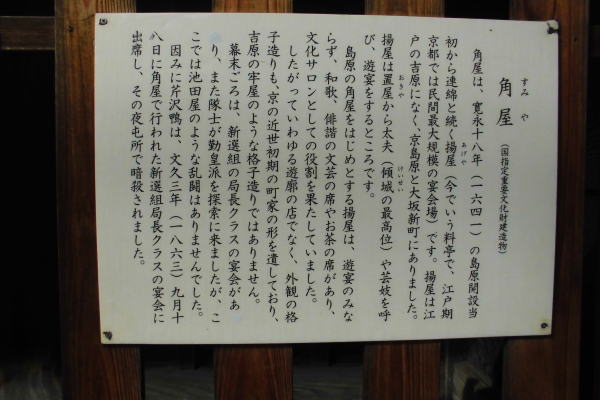 角屋
すみや
(国指定重要文化財建造物)
角屋は、寛永十八年(一六四一)の島原開設当
初から連綿と続く揚屋(今でいう料亭で、江戸期
あげや
京都では民間最大規模の宴会場)です。揚屋は江
戸の吉原になく、京島原と大坂新町にありました。
揚屋は置屋から太夫(傾城の最高位)や芸妓を呼
おきや
けいせい
び、遊宴をするところです。
島原の角屋をはじめとする揚屋は、遊宴のみな
らず、和歌、俳諧の文芸の席やお茶の席があり、
文化サロンとしての役割を果たしていました。
したがっていわゆる遊廓の店でなく、外観の格
子造りも、京の近世初期の町家の形を遺しており、
吉原の牢屋のような格子造りではありません。
幕末ごろは、新選組の局長クラスの宴会があ
り、また隊士が勤皇派を探索に来ましたが、こ
こでは池田屋のような乱闘はありませんでした。
因みに芹沢鴨は、文久三年(一八六三)九月十
八日に角屋で行われた新選組局長クラスの宴会に
出席し、その夜屯所で暗殺されました。